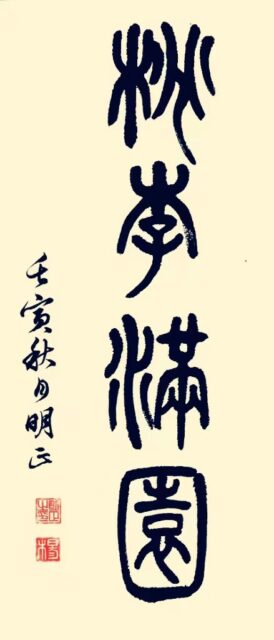 桃李滿園
壬寅秋月明正